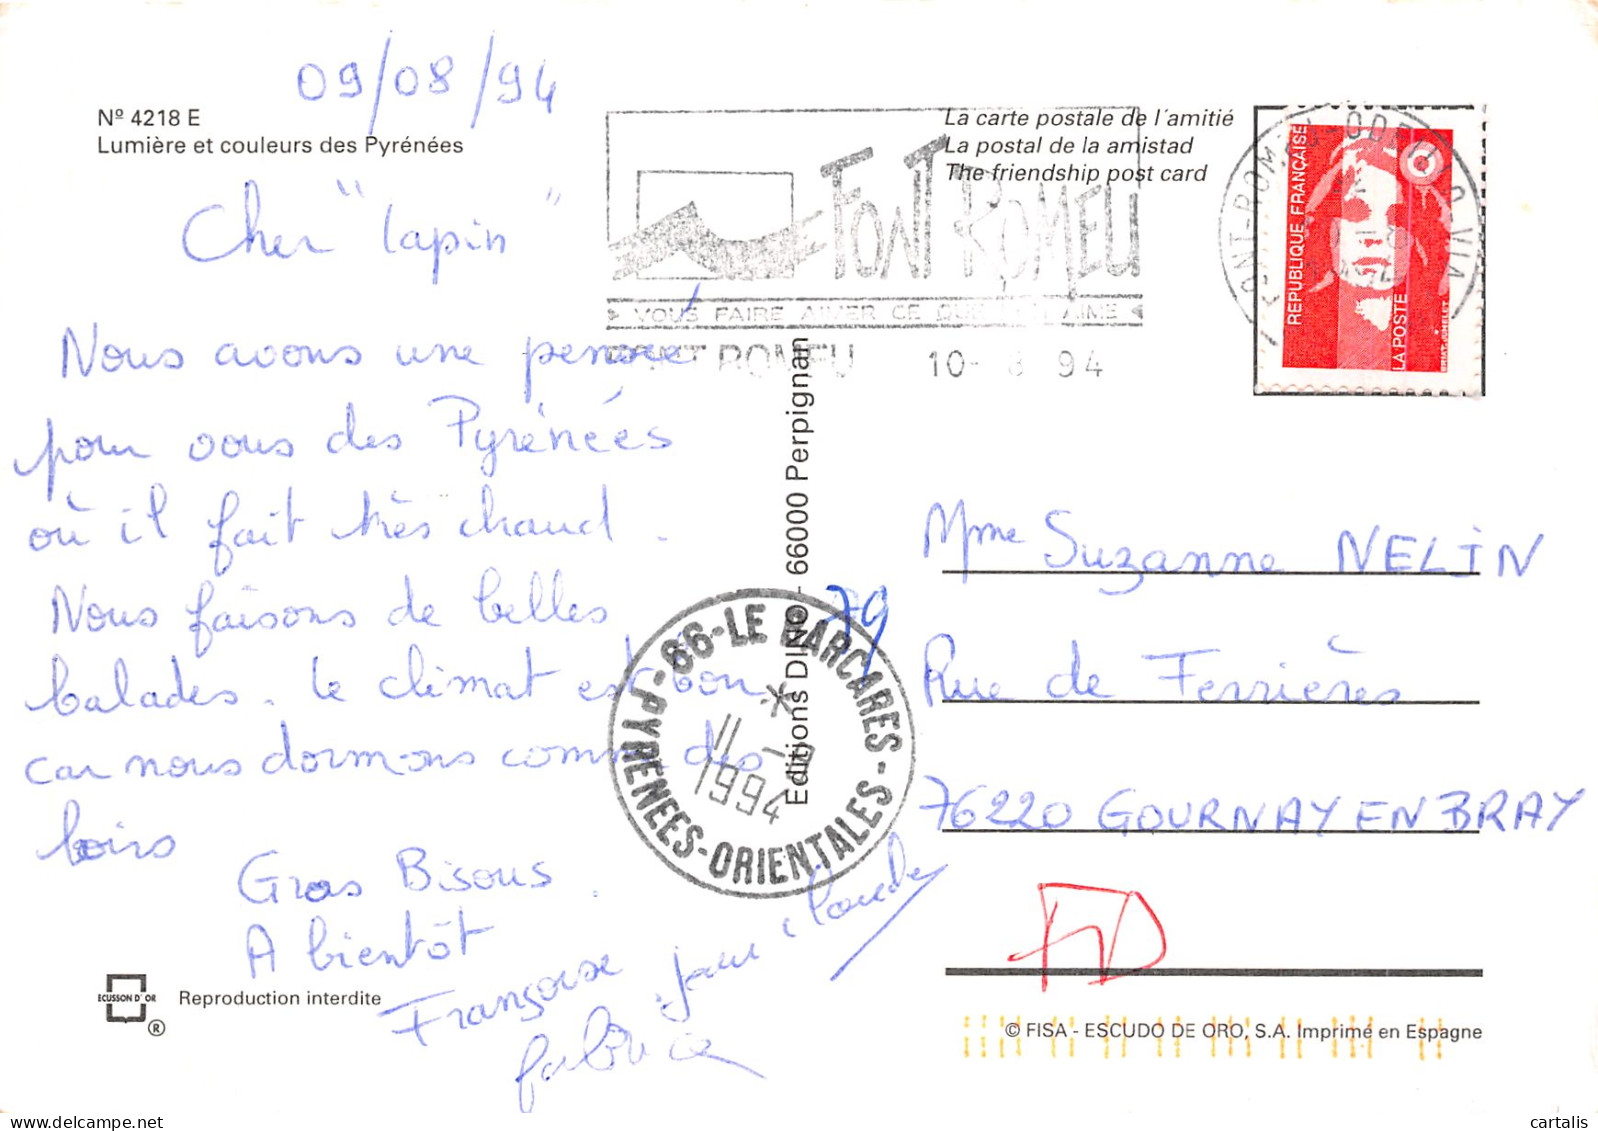 09/08/94
Nº 4218 E
Lumière et couleurs des Pyrénées
Cher "lapin"
Nous avons une pensée
pour vous des Pyrénées
où il fait très chaud.
Nous faisons de belles
balades. Le climat est bon
car nous dormons comme des
loirs
Gros Bisous.
A bientôt
Françoise Jean Claude
fabrice
ECUSSON D'OR
®
Reproduction interdite
La carte postale de l'amitié
La postal de la amistad
The friendship post card
FONT ROMEU
VOUS FAIRE AIMER CE QUE AIME
FONT ROMEU 10- 8 94
FONT-ROMEU-ODEILLO-VIA
REPUBLIQUE FRANÇAISE
LA POSTE
Editions DINO - 66000 Perpignan
66-LE BARCARES
PYRENEES-ORIENTALES
11 -8
1994
79
Mme Suzanne NELIN
Rue de Ferrières
76220 GOURNAY EN BRAY
© FISA - ESCUDO DE ORO, S.A. Imprimé en Espagne
cartalis